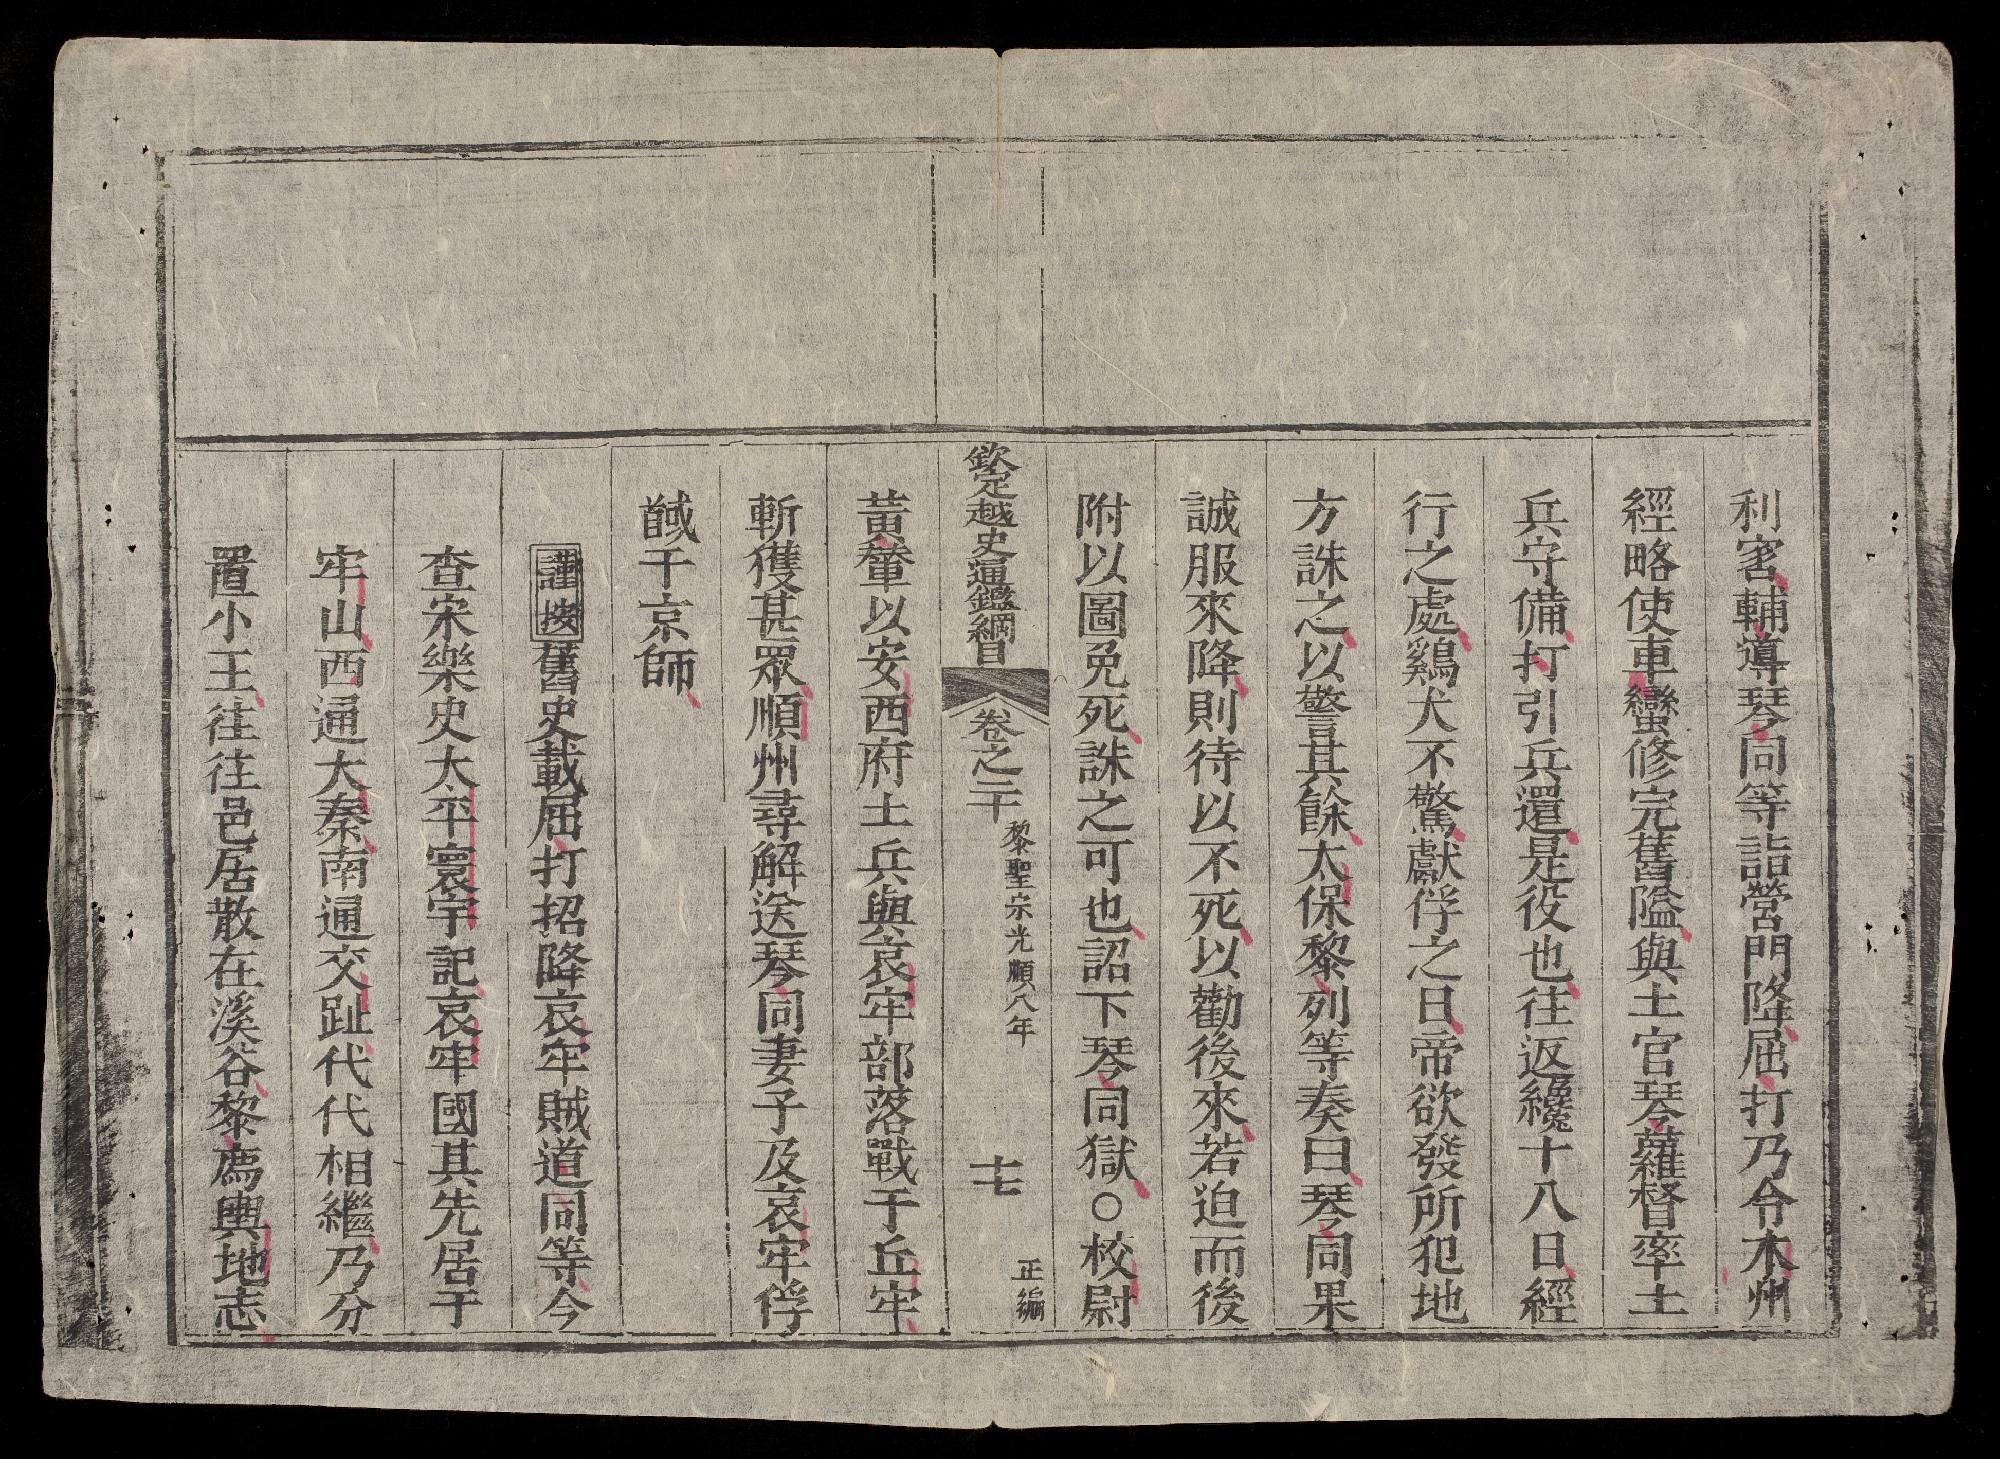 利害輔導琴同等詣營門降屈打乃令木州
經略使車蠻修完舊隘與土官琴蘿督率土
兵守備打引兵還是役也往返纔十八日經
行之處鷄犬不驚獻俘之日帝欲發所犯地
方誅之以警其餘太保黎列等奏曰琴同果
誠服來降則待以不死以勸後來若迫而後
附以圖免死誅之可也詔下琴同獄○校尉
欽定越史通鑑綱目 卷之二十 黎聖宗光順八年 十七 正編
黃輦以安西府土兵與哀牢部落戰于丘牢
斬獲甚眾順州尋解送琴同妻子及哀牢俘
馘于京師
謹按舊史載屈打招降哀牢賊道同等今
查宋樂史太平寰宇記哀牢國其先居于
牢山西通大秦南通交趾代代相繼乃分
置小王往往邑居散在溪谷黎廌輿地志